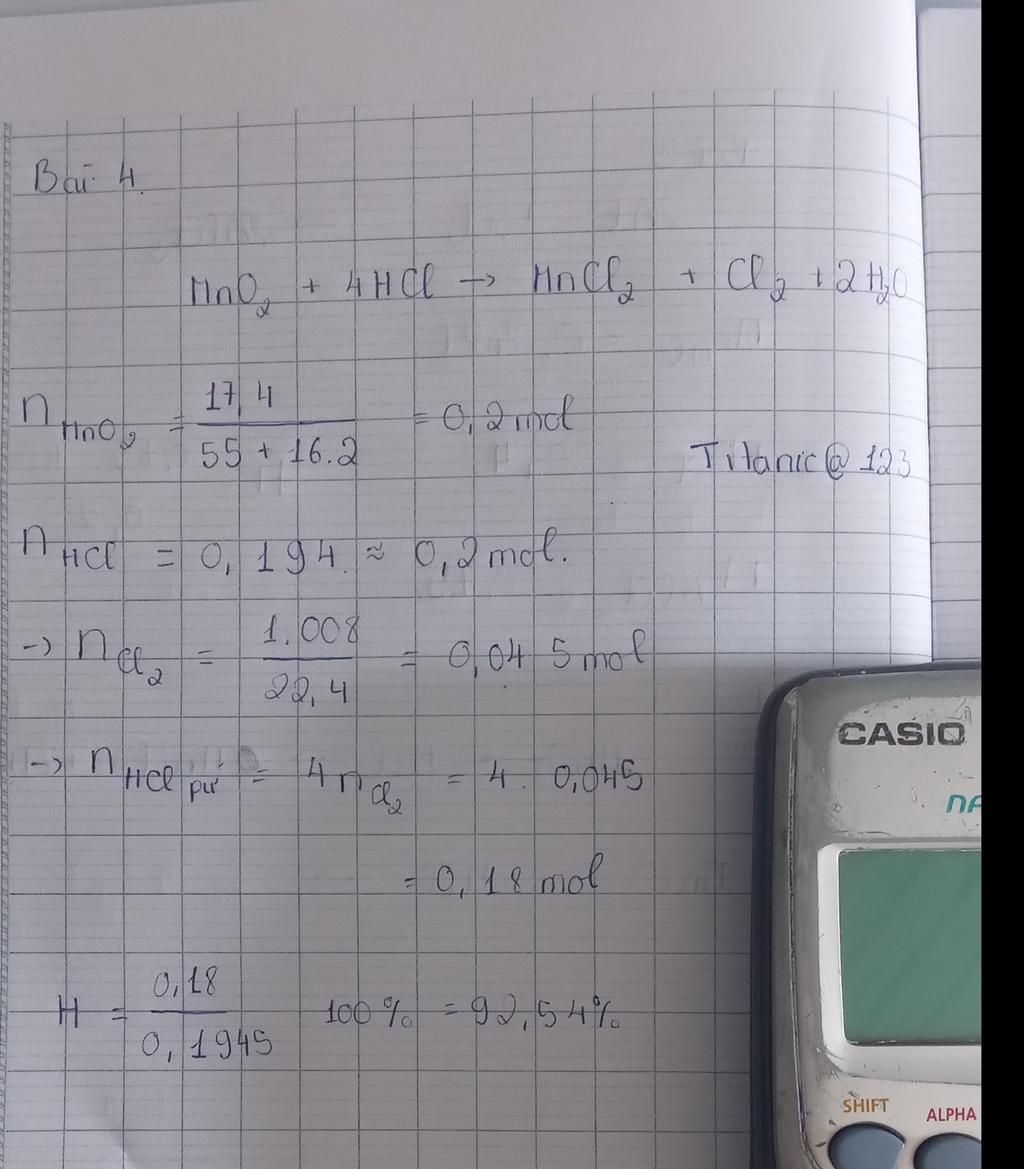 Bài 4.
MnO2 + 4HCl → MnCl2 + Cl2 + 2H2O
nMnO2 = 17,4 / 55 + 16.2 = 0,2 mol
Titanic@123
nHCl = 0,194 ≈ 0,2 mol.
→ nCl2 = 1.008 / 22,4 = 0,045 mol
→ nHCl pư = 4 nCl2 = 4. 0,045
= 0,18 mol
H = 0,18 / 0,1945 100% = 92,54%
CASIO
SHIFT ALPHA